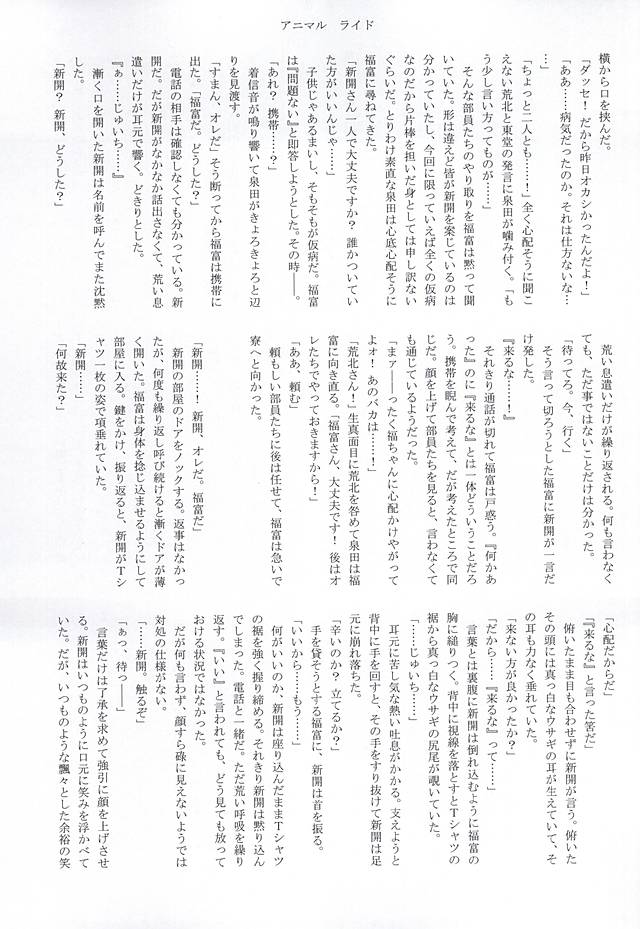 アニマル　ライド
横から口を挟んだ。
「ダッセ！だから昨日オカシかったんだよ！」
「ああ……病気だったのか。それは仕方ないな…
…」
「ちょっと二人とも……！」全く心配そうに聞こ
えない荒北と東堂の発言に泉田が噛み付く。「も
う少し言い方ってものが……」
そんな部員たちのやり取りを福富は黙って聞
いていた。形は違えど皆が新開を案じているのは
分かっていたし、今回に限っていえば全くの仮病
なのだから片棒を担いだ身としては申し訳ない
ぐらいだ。とりわけ素直な泉田は心底心配そうに
福富に尋ねてきた。
「新開さん一人で大丈夫ですか？　誰かついてい
た方がいいんじゃ……」
子供じゃあるまいし、そもそもが仮病だ。福富
は『問題ない』と即答しようとした。その時――。
「あれ？　携帯……？」
着信音が鳴り響いて泉田がきょろきょろと辺
りを見渡す。
「すまん、オレだ」そう断ってから福富は携帯に
出た。「福富だ。どうした？」
電話の相手は確認しなくても分かっている。新
開だ。だが新開がなかなか話出さなくて、荒い息
遣いだけが耳元で響く。どきりとした。
『ぁ……じゅいち……』
漸く口を開いた新開は名前を呼んでまた沈黙
した。
「新開？　新開、どうした？」
荒い息遣いだけが繰り返される。何も言わなく
ても、ただ事ではないことだけは分かった。
「待ってろ。今、行く」
そう言って切ろうとした福富に新開が一言だ
け発した。
『来るな……！』
それきり通話が切れて福富は戸惑う。『何かあ
った』のに『来るな』とは一体どういうことだろ
う。携帯を睨んで考えて、だが考えたところで同
じだ。顔を上げて部員たちを見ると、言わなくて
も通じているようだった。
「まァ――ったく福ちゃんに心配かけやがって
よォ！　あのバカは……！」
「荒北さん！」生真面目に荒北を咎めて泉田は福
富に向き直る。「福富さん、大丈夫です！　後はオ
レたちでやっておきますから！」
「ああ、頼む」
頼もしい部員たちに後は任せて、福富は急いで
寮へと向かった。
「新開……！　新開、オレだ。福富だ」
新開の部屋のドアをノックする。返事はなかっ
たが、何度も繰り返し呼び続けると漸くドアが薄
く開いた。福富は身体を捻じ込ませるようにして
部屋に入る。鍵をかけ、振り返ると、新開がＴシ
ャツ一枚の姿で項垂れていた。
「新開……」
「何故来た？」
「心配だからだ」
「『来るな』と言った筈だ」
俯いたまま目も合わせずに新開が言う。俯いた
その頭には真っ白なウサギの耳が生えていて、そ
の耳も力なく垂れていた。
「来ない方が良かったか？」
「だから……『来るな』って……」
言葉とは裏腹に新開は倒れ込むように福富の
胸に縋りつく。背中に視線を落とすとＴシャツの
裾から真っ白なウサギの尻尾が覗いていた。
「……じゅいち……」
耳元に苦し気な熱い吐息がかかる。支えようと
背中に手を回すと、その手をすり抜けて新開は足
元に崩れ落ちた。
「辛いのか？　立てるか？」
手を貸そうとする福富に、新開は首を振る。
「いいから……もう……」
何がいいのか、新開は座り込んだままＴシャツ
の裾を強く握り締める。それきり新開は黙り込ん
でしまった。電話と一緒だ。ただ荒い呼吸を繰り
返す。『いい』と言われても、どう見ても放って
おける状況ではなかった。
だが何も言わず、顔すら碌に見えないようでは
対処の仕様がない。
「……新開。触るぞ」
「ぁっ、待っ――」
言葉だけは了承を求めて強引に顔を上げさせ
る。新開はいつものように口元に笑みを浮かべて
いた。だが、いつものような飄々とした余裕の笑